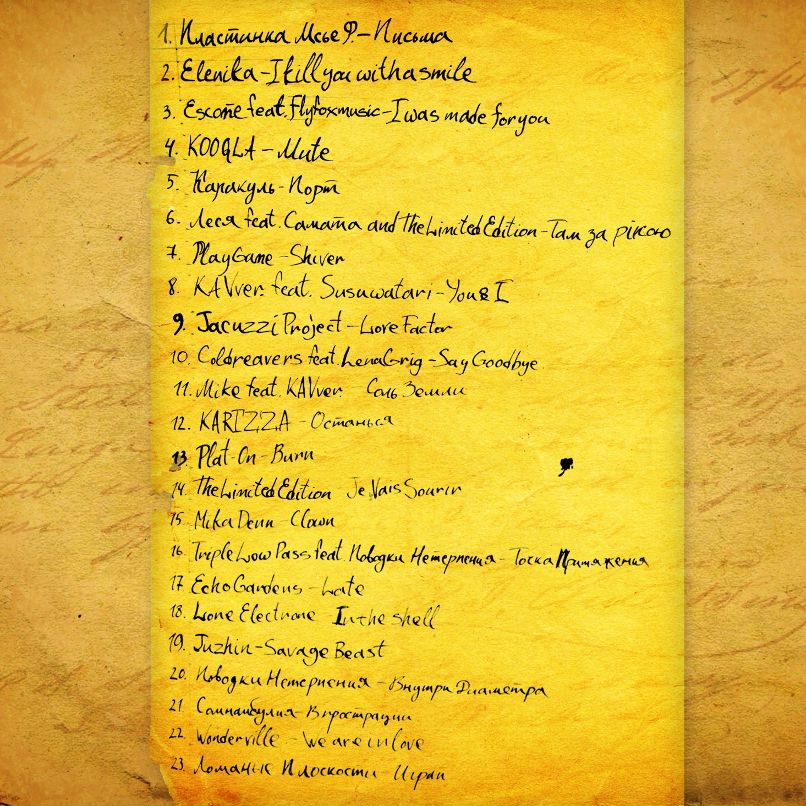 1. Пластинка Мсье Ф. - Письма
2. Elenika - I kill you with a smile
3. Escome feat. Flyfoxmusic - I was made for you
4. KOOQLA - Mute
5. Каракуль - Порт
6. Леся feat. Самата and The Limited Edition - Там за рікою
7. PlayGame - Shiver
8. KAVver. feat. Susuwatari - You & I
9. Jacuzzi Project - Love Factor
10. Coldreavers feat. Lena Grig - Say Goodbye
11. Mike feat. KAVver - Соль Земли
12. KARIZZA - Останься
13. Plat-On - Burn
14. The Limited Edition - Je Vais Sourir
15. Mika Denn - Clown
16. Triple Low Pass feat. Поводки Нетерпения - Тоска Притяжения
17 Echo Gardens - Late
18. Lone Electrone In the shell
19. Juzhin - Savage Beast
20. Поводки Нетерпения - Внутри Диаметра
21 Сомнамбулия - В прострации
22 Wonderville - We are in love
23. Ломаные Плоскости - Играй